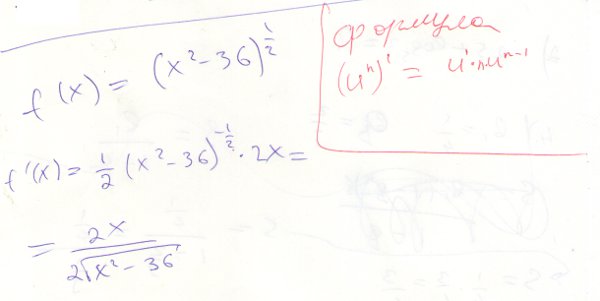 f(x) = (x² - 36)^{1/2}
формула
(uⁿ)' = u'·n·uⁿ⁻¹
f'(x) = 1/2 (x² - 36)^{-1/2} · 2x =
= 2x / 2√(x² - 36)